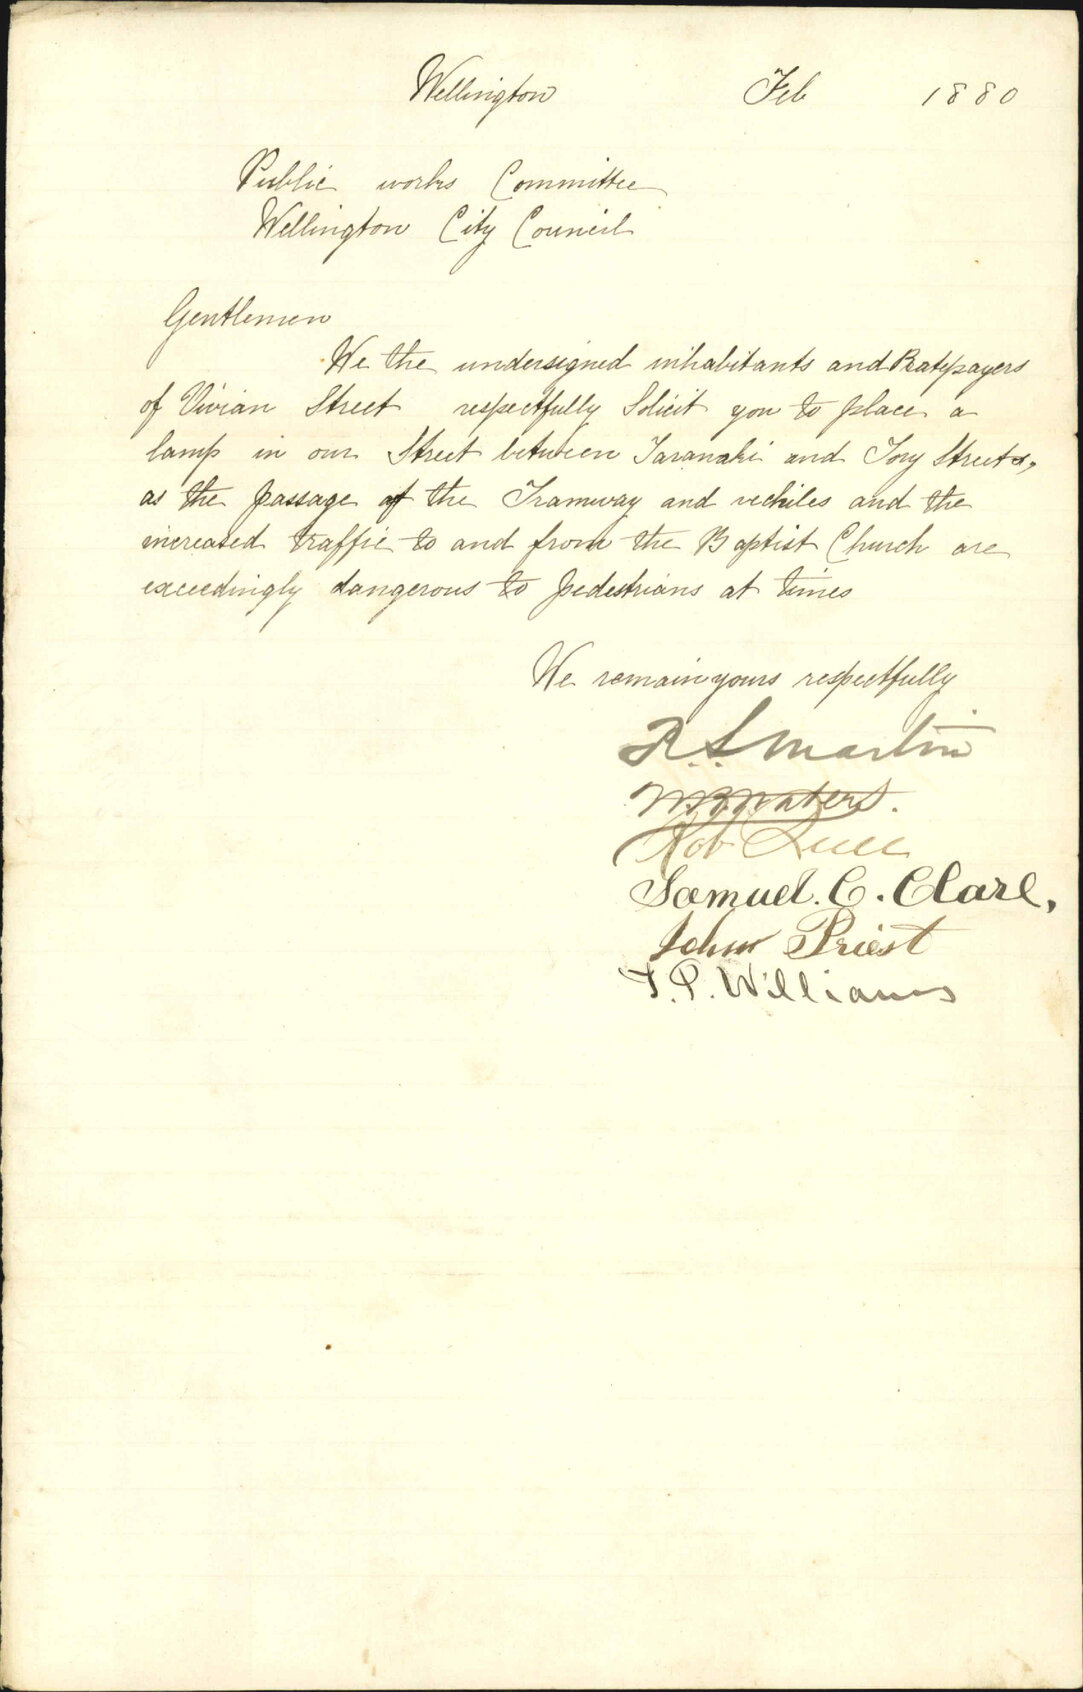 Wellington Feb 1880
Public works Committee
Wellington City Council
Gentlemen
We the undersigned inhabitants and Ratepayers
of Vivian Street respectfully Solicit you to place a
lamp in our Street between Taranaki and Tory Streets,
as the passage of the Tramway and vechiles and the
increased traffic to and from the Baptist Church are
exceedingly dangerous to pedestrians at times
We remain yours respectfully
R. S. Martin
Waters.
Rob
Samuel. C. Clare,
John Priest
T. P. Williams